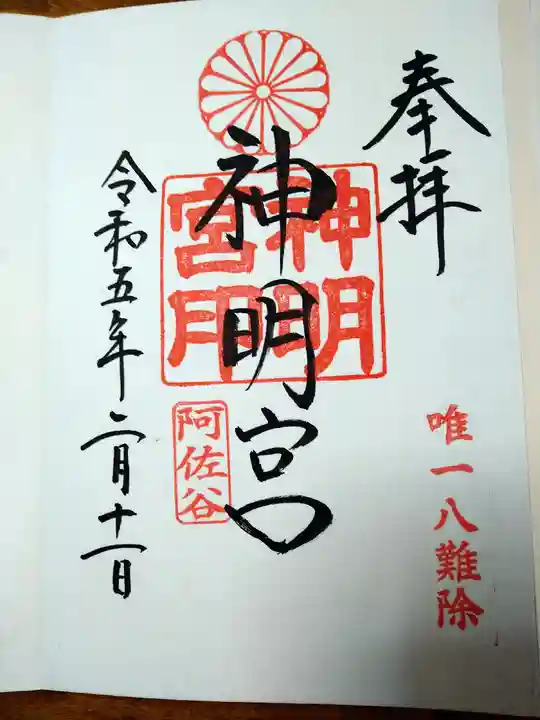 奉拝
唯一八難除
神明宮
神明宮用
阿佐谷
令和五年二月十一日